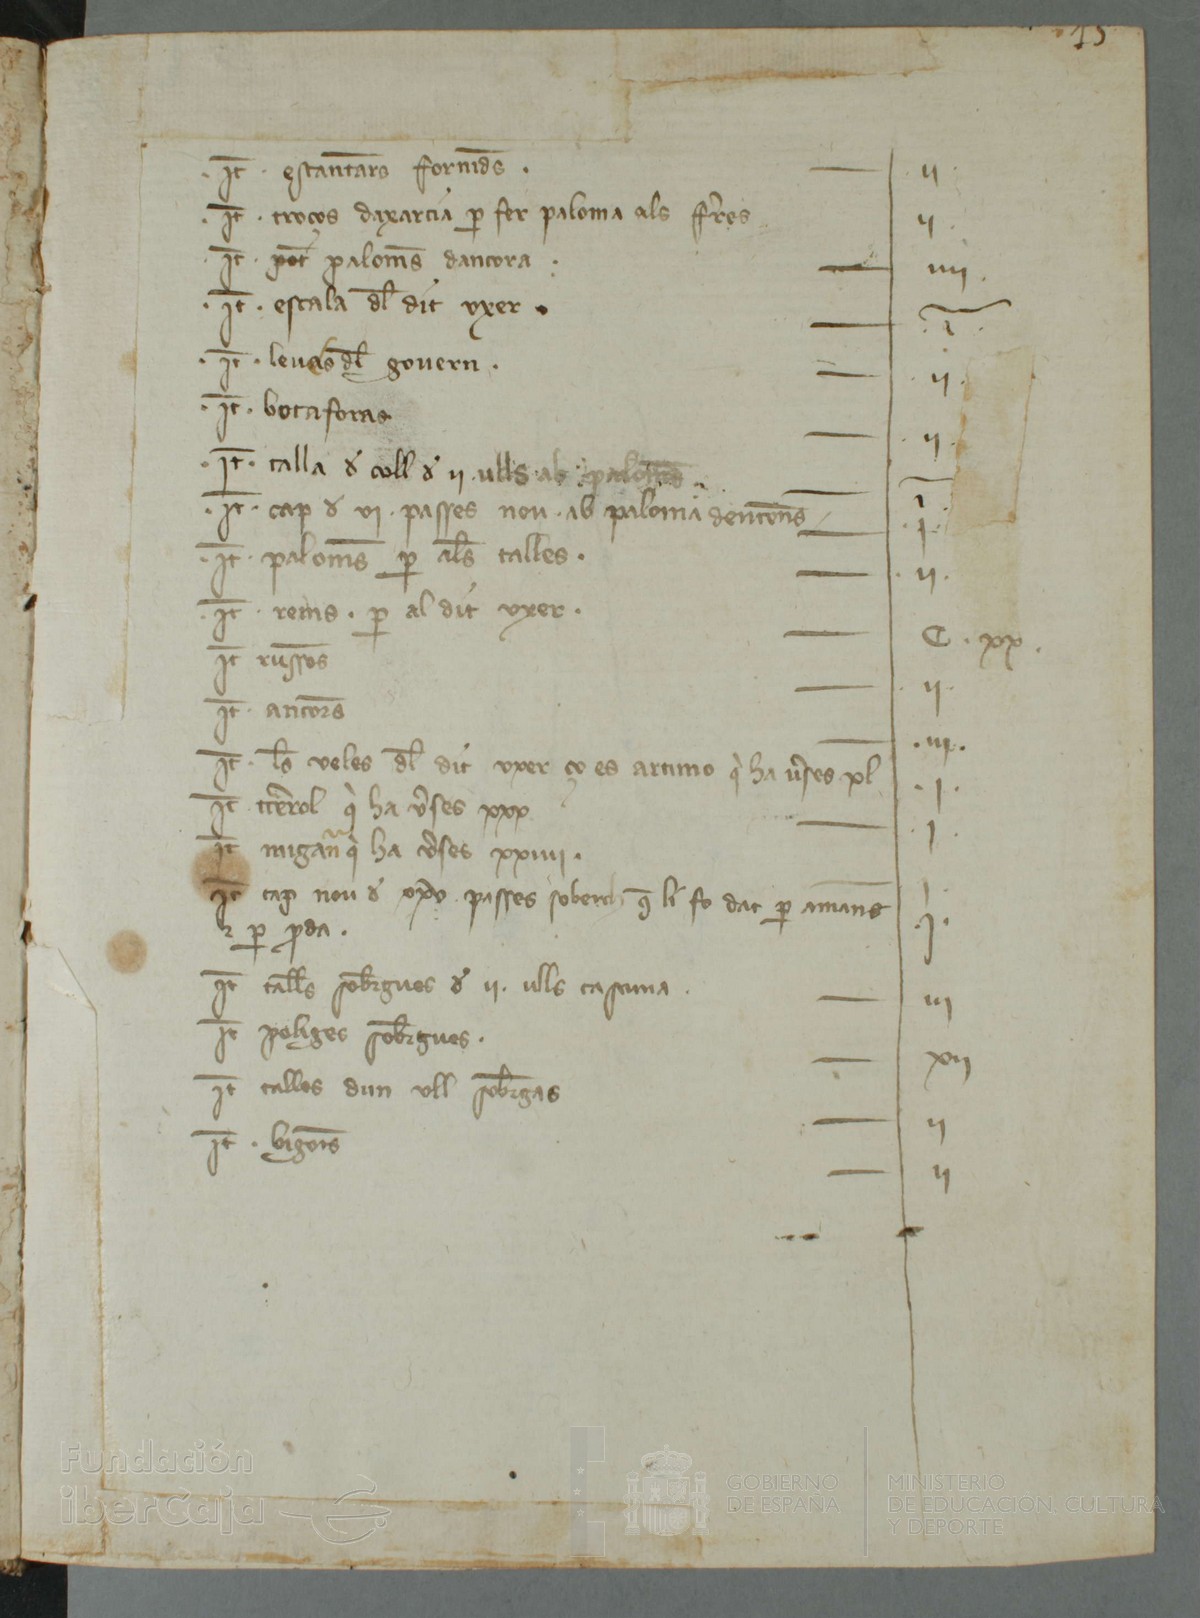 15
·It· estantars fornids· — ii·
·It· troços daxarcia p fer paloma als fres ii·
·It· paloms dancora· — iiii·
·It· escala dl dit uxer· — ·i·
·It· levas dl govern· — ii·
·It· botaforas — ·ii·
·It· talla d coll d ii ulls ab — i
·It· cap d vi· passes nou· ab paloma — ·i·
·It· paloms p als talles· — ·ii·
·It· rems· p al dit uxer· — C·xx·
It russos — ·ii·
It· ancors — ·iii·
It· les veles dl dit uxer ço es artimo q ha vses xl ·i·
It terol q ha vses xxx — ·i·
It q ha vses xxiiii·
It cap nou d passes q li fo dat p amans ·i·
p proda·
It talls sobrgues d ii· ulls cascuna· — iii
It poliges sobrgues· — xii
It talles dun ull sobrgas — ii
It· bigots — ii
Fundación
iberCaja
GOBIERNO
DE ESPAÑA
MINISTERIO
DE EDUCACIÓN, CULTURA
Y DEPORTE